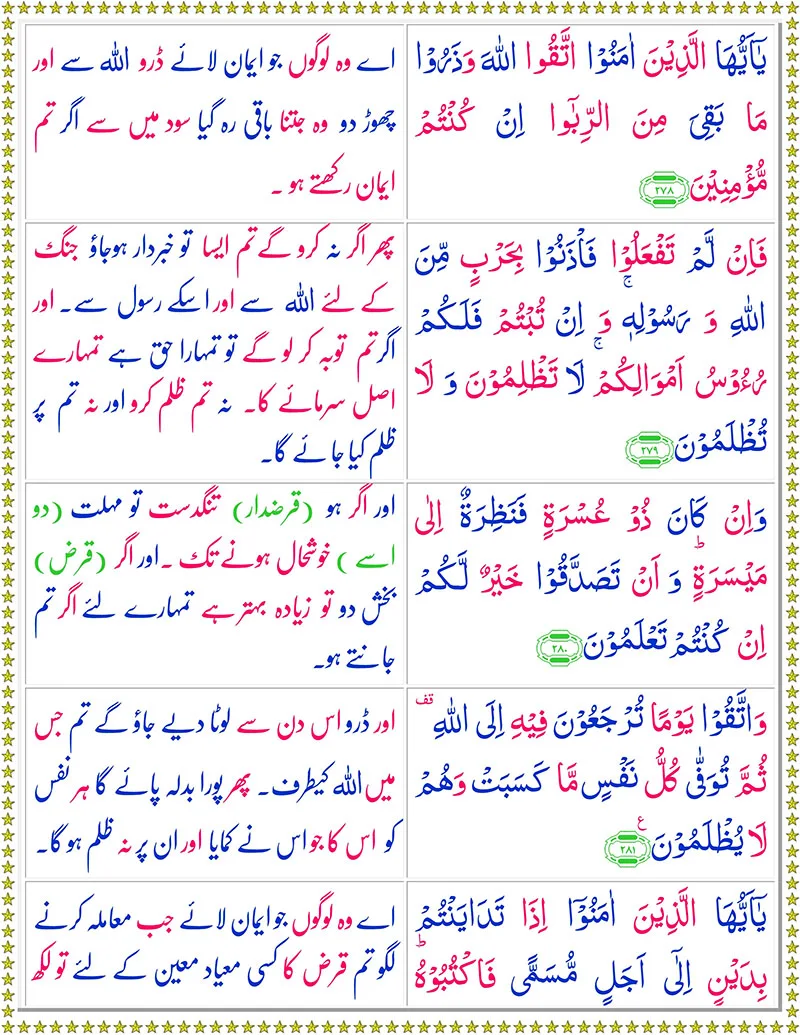 يٰۤاَيُّهَا الَّذِيْنَ اٰمَنُوْا اتَّقُوا اللهَ وَذَرُوْا
مَا بَقِىَ مِنَ الرِّبٰٓوا اِنْ كُنْتُمْ
مُّؤْمِنِيْنَ ٢٧٨
اے وہ لوگوں جو ایمان لائے ڈرو اللہ سے اور
چھوڑ دو وہ جتنا باقی رہ گیا سود میں سے اگر تم
ایمان رکھتے ہو ۔
فَاِنْ لَّمْ تَفْعَلُوْا فَاْذَنُوْا بِحَرْبٍ مِّنَ
اللهِ وَ رَسُوْلِهٖ ۚ وَ اِنْ تُبْتُمْ فَلَـكُمْ
رُءُوْسُ اَمْوَالِكُمْ ۚ لَا تَظْلِمُوْنَ وَ لَا
تُظْلَمُوْنَ ٢٧٩
پھر اگر نہ کرو گے تم ایسا تو خبردار ہوجاؤ جنگ
کے لئے اللہ سے اور اسکے رسول سے۔ اور
اگرتم توبہ کر لو گے تو تمہارا حق ہے تمہارے
اصل سرمائے کا۔ نہ تم ظلم کرو اور نہ تم پر
ظلم کیا جائے گا۔
وَاِنْ كَانَ ذُوْ عُسْرَةٍ فَنَظِرَةٌ اِلٰى
مَيْسَرَةٍ ؕ وَ اَنْ تَصَدَّقُوْا خَيْرٌ لَّـكُمْ
اِنْ كُنْتُمْ تَعْلَمُوْنَ ٢٨٠
اور اگر ہو (قرضدار) تنگدست تو مہلت (دو
اسے ) خوشحال ہونے تک ۔اور اگر (قرض)
بخش دو تو زیادہ بہتر ہے تمہارے لئے اگر تم
جانتے ہو۔
وَاتَّقُوْا يَوْمًا تُرْجَعُوْنَ فِيْهِ اِلَى اللهِ قف
ثُمَّ تُوَفّٰى كُلُّ نَفْسٍ مَّا كَسَبَتْ وَهُمْ
لَا يُظْلَمُوْنَ ع ٢٨١
اور ڈرو اس دن سے لوٹا دیے جاؤ گے تم جس
میں اللہ کیطرف۔ پھر پورا بدلہ پائے گا ہر نفس
کو اس کا جو اس نے کمایا اور ان پر نہ ظلم ہو گا۔
يٰۤاَيُّهَا الَّذِيْنَ اٰمَنُوْۤا اِذَا تَدَايَنْتُمْ
بِدَيْنٍ اِلٰٓى اَجَلٍ مُّسَمًّى فَاكْتُبُوْهُ ؕ
اے وہ لوگوں جو ایمان لائے جب معاملہ کرنے
لگو تم قرض کا کسی میعاد معین کے لئے تو لکھ